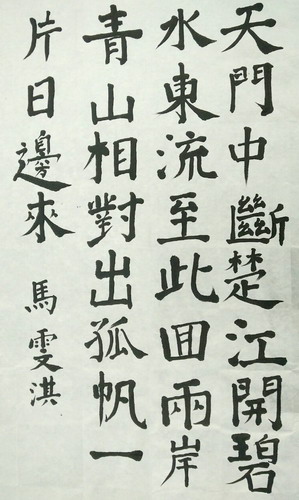 天門中斷楚江開碧
水東流至此回兩岸
青山相對出孤帆一
片日邊來 馬雯淇